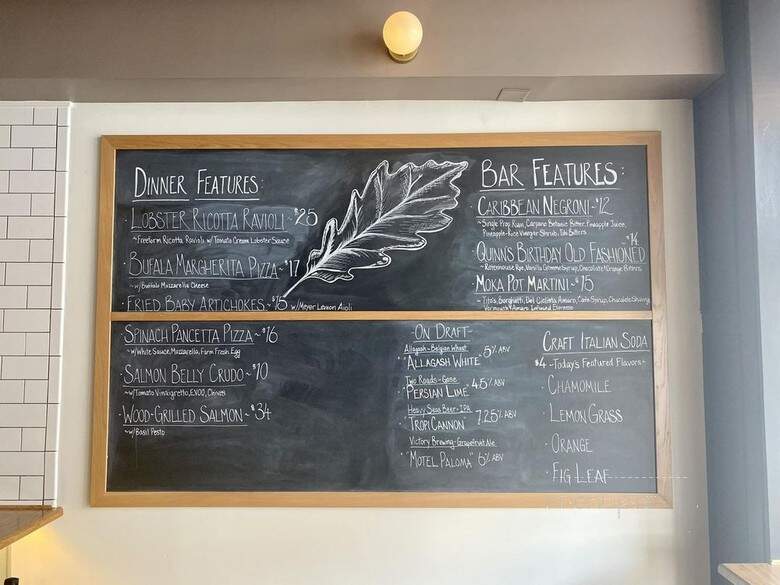 DINNER FEATURES:
· LOBSTER RICOTTA RAVIOLI ~ $25
~ Freeform Ricotta Ravioli w/ Tomato Cream Lobster Sauce
· BUFALA MARGHERITA PIZZA ~ $17
~ w/ Buffalo Mozzarella Cheese
· FRIED BABY ARTICHOKES ~ $15 w/ Meyer Lemon Aioli
SPINACH PANCETTA PIZZA ~ $16
~ w/ White Sauce, Mozzarella, Farm Fresh Egg
· SALMON BELLY CRUDO ~ $10
~ w/ Tomato Vinaigrette, EVOO, Chives
· WOOD-GRILLED SALMON ~ $34
~ w/ Basil Pesto
BAR FEATURES:
· CARIBBEAN NEGRONI ~ $12
~ Single Prop Rum, Carpano Botanic Bitter, Pineapple Juice,
Pineapple-Rice Vinegar Shrub, Tiki Bitters
· QUINN'S BIRTHDAY OLD FASHIONED ~ $14
~ Rittenhouse Rye, Vanilla Syrup, Chocolate Orange Bitters
· MOKA POT MARTINI ~ $15
~ Tito's, Borghetti, Amaro, Syrup, Chocolate
Vermouth Amaro Infused Espresso
-ON DRAFT-
Allagash - Belgian Wheat
"ALLAGASH WHITE" 5% ABV
Two Roads - Gose
"PERSIAN LIME" 4.5% ABV
Heavy Seas Beer - IPA
"TROPICANNON" 7.25% ABV
Victory Brewing - Grapefruit Ale
"MOTEL PALOMA" 6% ABV
CRAFT ITALIAN SODA
$4 ~ Today's Featured Flavors ~
· CHAMOMILE
· LEMON GRASS
· ORANGE
· FIG LEAF